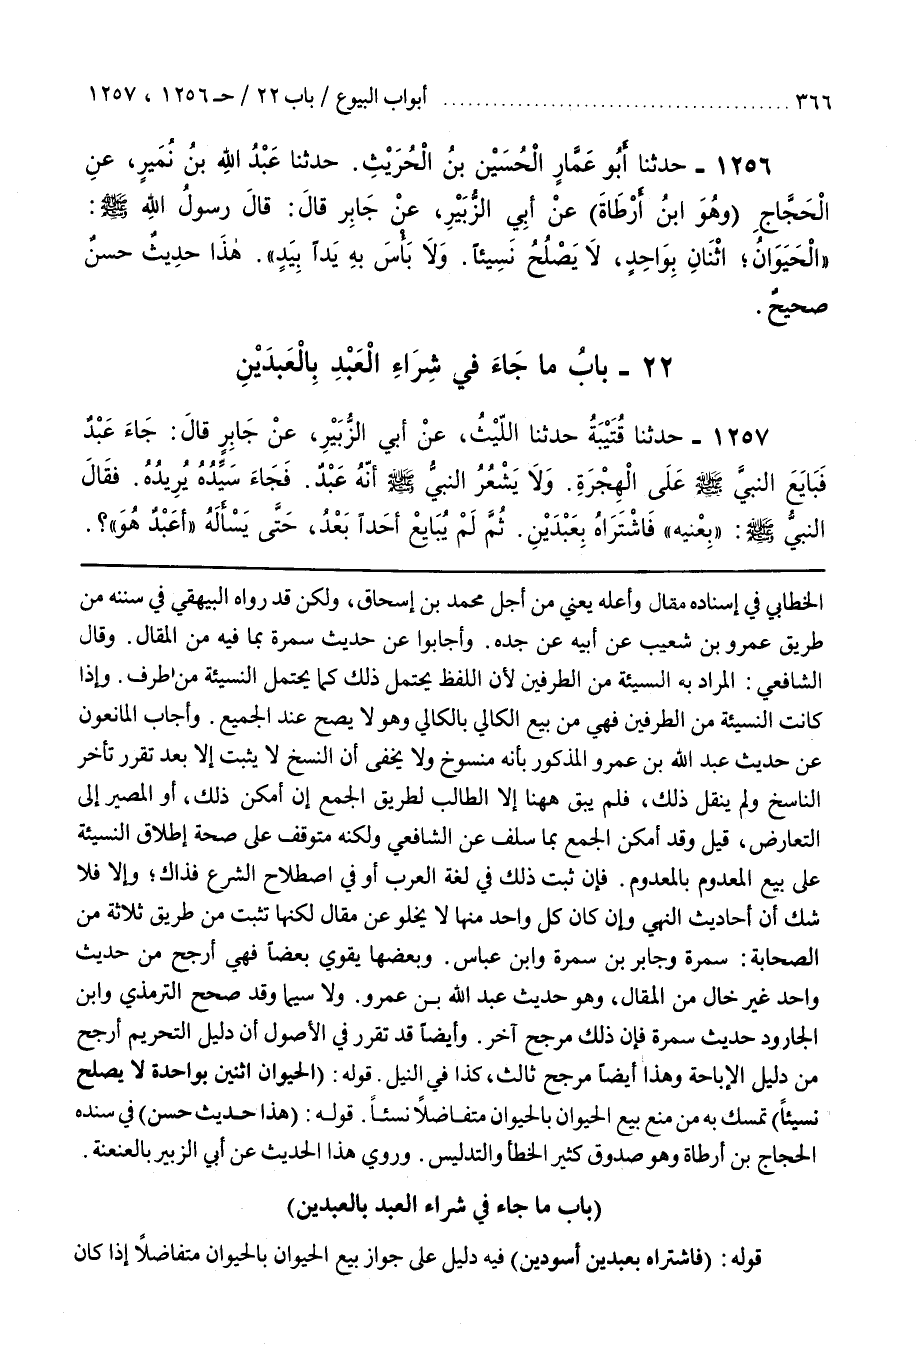 ٣٦٦ ........................................ أبواب البيوع / باب ٢٢ / حـ ١٢٥٦ ، ١٢٥٧
١٢٥٦ ـ حدثنا أَبُو عَمَّارٍ الْحُسَيْن بنُ الْحُرَيْثِ. حدثنا عَبْدُ الله بنُ نُمَيرٍ، عنِ
الْحَجَّاجِ (وهُوَ ابنُ أَرْطَاةَ) عنْ أبي الزُّبَيْرِ، عنْ جَابِر قالَ: قالَ رسولُ الله ﷺ:
«الْحَيَوَانُ؛ اثْنَانِ بِوَاحِدٍ، لاَ يَصْلُحُ نَسِيئاً. وَلاَ بَأْسَ بهِ يَداً بِيَدٍ». هٰذَا حدِيثٌ حسنٌ
صحيحٌ.
٢٢ ـ بابُ ما جَاءَ في شِرَاءِ الْعَبْدِ بِالْعَبدَيْنِ
١٢٥٧ ـ حدثنا قُتَيْبَةُ حدثنا اللّيْثُ، عنْ أبي الزُّبَيْرِ، عن جَابِرٍ قالَ: جَاءَ عَبْدٌ
فَبَايَعَ النبيَّ ﷺ عَلَى الْهِجْرَةِ. وَلاَ يَشْعُرُ النبيُّ ﷺ أنّهُ عَبْدٌ. فَجَاءَ سَيِّدُهُ يُرِيدُهُ. فقَالَ
النبيُّ ﷺ: «بِعْنيه» فَاشْتَرَاهُ بِعَبْدَيْنِ. ثُمَّ لَمْ يُبَايِعْ أحَداً بَعْدُ، حَتَّى يَسْأَلَهُ «أعَبْدٌ هُوَ»؟.
الخطابي في إسناده مقال وأعله يعني من أجل محمد بن إسحاق، ولكن قد رواه البيهقي في سننه من
طريق عمرو بن شعيب عن أبيه عن جده. وأجابوا عن حديث سمرة بما فيه من المقال. وقال
الشافعي: المراد به النسيئة من الطرفين لأن اللفظ يحتمل ذلك كما يحتمل النسيئة من طرف. وإذا
كانت النسيئة من الطرفين فهي من بيع الكالي بالكالي وهو لا يصح عند الجميع. وأجاب المانعون
عن حديث عبد الله بن عمرو المذكور بأنه منسوخ ولا يخفى أن النسخ لا يثبت إلا بعد تقرر تأخر
الناسخ ولم ينقل ذلك، فلم يبق ههنا إلا الطالب لطريق الجمع إن أمكن ذلك، أو المصير إلى
التعارض، قيل وقد أمكن الجمع بما سلف عن الشافعي ولكنه متوقف على صحة إطلاق النسيئة
على بيع المعدوم بالمعدوم. فإن ثبت ذلك في لغة العرب أو في اصطلاح الشرع فذاك؛ وإلا فلا
شك أن أحاديث النهي وإن كان كل واحد منها لا يخلو عن مقال لكنها تثبت من طريق ثلاثة من
الصحابة: سمرة وجابر بن سمرة وابن عباس. وبعضها يقوي بعضاً فهي أرجح من حديث
واحد غير خال من المقال، وهو حديث عبد الله بـن عمرو. ولا سيما وقد صحح الترمذي وابن
الجارود حديث سمرة فإن ذلك مرجح آخر. وأيضاً قد تقرر في الأصول أن دليل التحريم أرجح
من دليل الإباحة وهذا أيضاً مرجح ثالث، كذا في النيل. قوله: (الحيوان اثنين بواحدة لا يصلح
نسيئاً) تمسك به من منع بيع الحيوان بالحيوان متفـاضـلًا نسئـاً. قولـه: (هذا حـديث حسن) في سنده
الحجاج بن أرطاة وهو صدوق كثير الخطأ والتدليس. وروي هذا الحديث عن أبي الزبير بالعنعنة.
(باب ما جاء في شراء العبد بالعبدين)
قوله: (فاشتراه بعبدين أسودين) فيه دليل على جواز بيع الحيوان بالحيوان متفاضلًا إذا كان